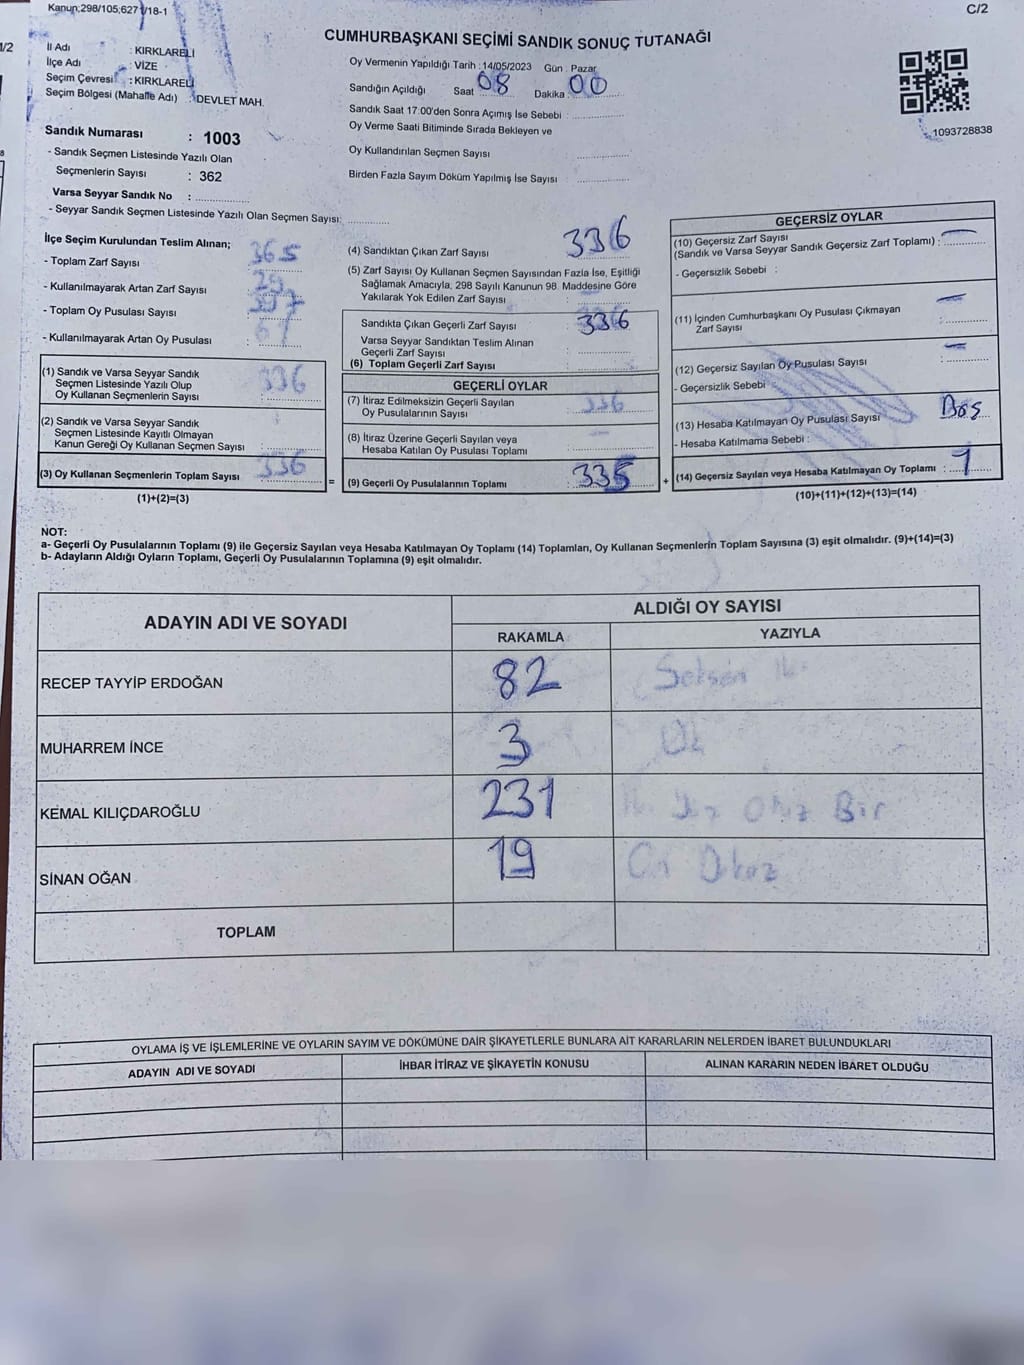 Kanun;298/105;627 1/18-1
C/2
1/2
CUMHURBAŞKANI SEÇİMİ SANDIK SONUÇ TUTANAĞI
İl Adı : KIRKLARELİ
İlçe Adı : VİZE
Seçim Çevresi : KIRKLARELİ
Seçim Bölgesi (Mahalle Adı) : DEVLET MAH.
Oy Vermenin Yapıldığı Tarih :14/05/2023 Gün : Pazar
Sandığın Açıldığı Saat 08 Dakika : 00
Sandık Saat 17:00'den Sonra Açımış İse Sebebi :
Oy Verme Saati Bitiminde Sırada Bekleyen ve
Oy Kullandırılan Seçmen Sayısı
Birden Fazla Sayım Döküm Yapılmış İse Sayısı
1093728838
Sandık Numarası : 1003
- Sandık Seçmen Listesinde Yazılı Olan
Seçmenlerin Sayısı : 362
Varsa Seyyar Sandık No :
- Seyyar Sandık Seçmen Listesinde Yazılı Olan Seçmen Sayısı:
İlçe Seçim Kurulundan Teslim Alınan;
- Toplam Zarf Sayısı 365
- Kullanılmayarak Artan Zarf Sayısı 29
- Toplam Oy Pusulası Sayısı
- Kullanılmayarak Artan Oy Pusulası :
(1) Sandık ve Varsa Seyyar Sandık
Seçmen Listesinde Yazılı Olup
Oy Kullanan Seçmenlerin Sayısı 336
(2) Sandık ve Varsa Seyyar Sandık
Seçmen Listesinde Kayıtlı Olmayan
Kanun Gereği Oy Kullanan Seçmen Sayısı :
(3) Oy Kullanan Seçmenlerin Toplam Sayısı 336
(1)+(2)=(3)
=
(4) Sandıktan Çıkan Zarf Sayısı 336
(5) Zarf Sayısı Oy Kullanan Seçmen Sayısından Fazla İse, Eşitliği
Sağlamak Amacıyla, 298 Sayılı Kanunun 98. Maddesine Göre
Yakılarak Yok Edilen Zarf Sayısı : –
Sandıkta Çıkan Geçerli Zarf Sayısı 336
Varsa Seyyar Sandıktan Teslim Alınan
Geçerli Zarf Sayısı :
(6) Toplam Geçerli Zarf Sayısı
GEÇERLİ OYLAR
(7) İtiraz Edilmeksizin Geçerli Sayılan
Oy Pusulalarının Sayısı 336
(8) İtiraz Üzerine Geçerli Sayılan veya
Hesaba Katılan Oy Pusulası Toplamı : –
(9) Geçerli Oy Pusulalarının Toplamı 335
+
GEÇERSİZ OYLAR
(10) Geçersiz Zarf Sayısı
(Sandık ve Varsa Seyyar Sandık Geçersiz Zarf Toplamı) : –
- Geçersizlik Sebebi :
(11) İçinden Cumhurbaşkanı Oy Pusulası Çıkmayan
Zarf Sayısı : –
(12) Geçersiz Sayılan Oy Pusulası Sayısı : –
- Geçersizlik Sebebi
(13) Hesaba Katılmayan Oy Pusulası Sayısı Boş
- Hesaba Katılmama Sebebi :
(14) Geçersiz Sayılan veya Hesaba Katılmayan Oy Toplamı : 1
(10)+(11)+(12)+(13)=(14)
NOT:
a- Geçerli Oy Pusulalarının Toplamı (9) ile Geçersiz Sayılan veya Hesaba Katılmayan Oy Toplamı (14) Toplamları, Oy Kullanan Seçmenlerin Toplam Sayısına (3) eşit olmalıdır. (9)+(14)=(3)
b- Adayların Aldığı Oyların Toplamı, Geçerli Oy Pusulalarının Toplamına (9) eşit olmalıdır.
ADAYIN ADI VE SOYADI
ALDIĞI OY SAYISI
RAKAMLA YAZIYLA
RECEP TAYYİP ERDOĞAN 82 Seksen
MUHARREM İNCE 3
KEMAL KILIÇDAROĞLU 231 Otuz Bir
SİNAN OĞAN 19 On Dokuz
TOPLAM
OYLAMA İŞ VE İŞLEMLERİNE VE OYLARIN SAYIM VE DÖKÜMÜNE DAİR ŞİKAYETLERLE BUNLARA AİT KARARLARIN NELERDEN İBARET BULUNDUKLARI
ADAYIN ADI VE SOYADI İHBAR İTİRAZ VE ŞİKAYETİN KONUSU ALINAN KARARIN NEDEN İBARET OLDUĞU